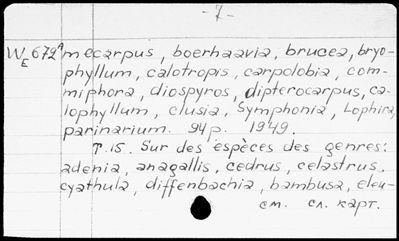 -7-
WE672A mecarpus, boerhaavia, brucea, bryo-
phyllum, calotropis, carpolobia, com-
miphora, diospyros, dipterocarpus, ca-
lophyllum, clusia, Symphonia, Lophira,
parinarium. 94p. 1949.
T.15. Sur des espèces des genres:
adenia, anagallis, cedrus, celastrus,
cyathula, diffenbachia, bambusa, eleu-
см. сл. карт.